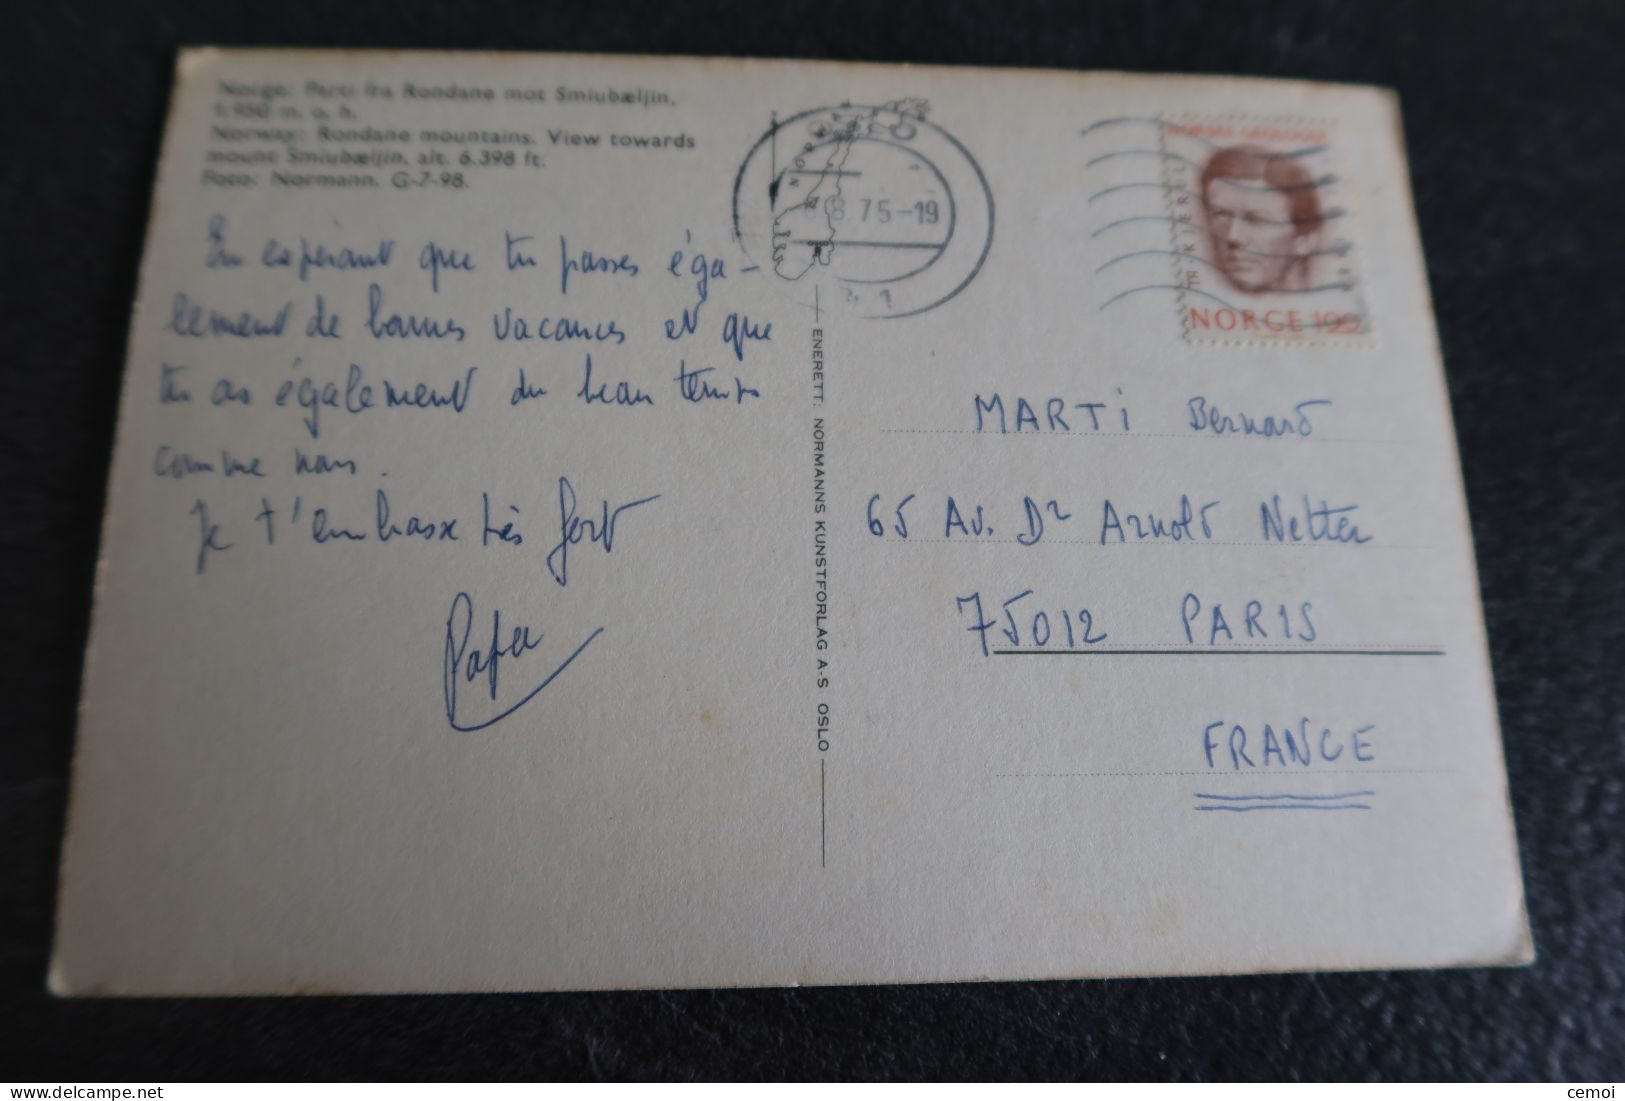 Norge: Parti fra Rondane mot Smiubæljin,
1.950 m. o. h.
Norway: Rondane mountains. View towards
mount Smiubæljin, alt. 6.398 ft.
Foto: Normann. G-7-98.
En espérant que tu passes éga-
lement de bonnes vacances et que
tu as également du beau temps
comme nous.
Je t'embrasse très fort
Papa
ENERETT: NORMANNS KUNSTFORLAG A-S OSLO
8.75-19
NORGE 100
MARTi Bernard
65 Av. Dr Arnold Netter
75012 PARIS
FRANCE
cemoi